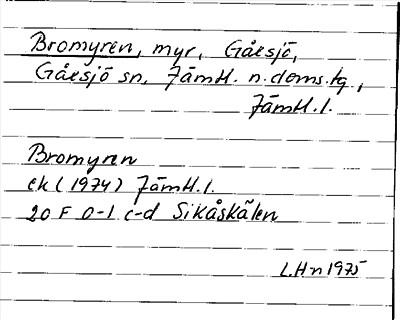 Bromyren, myr, Gåxsjö,
Gåxsjö sn, Jämtl. n. doms. tg,
Jämtl. l.
Bromyren
ek (1974) Jämtl. l.
20 F 0-1 c-d Sikåskälen
L.Hn 1975